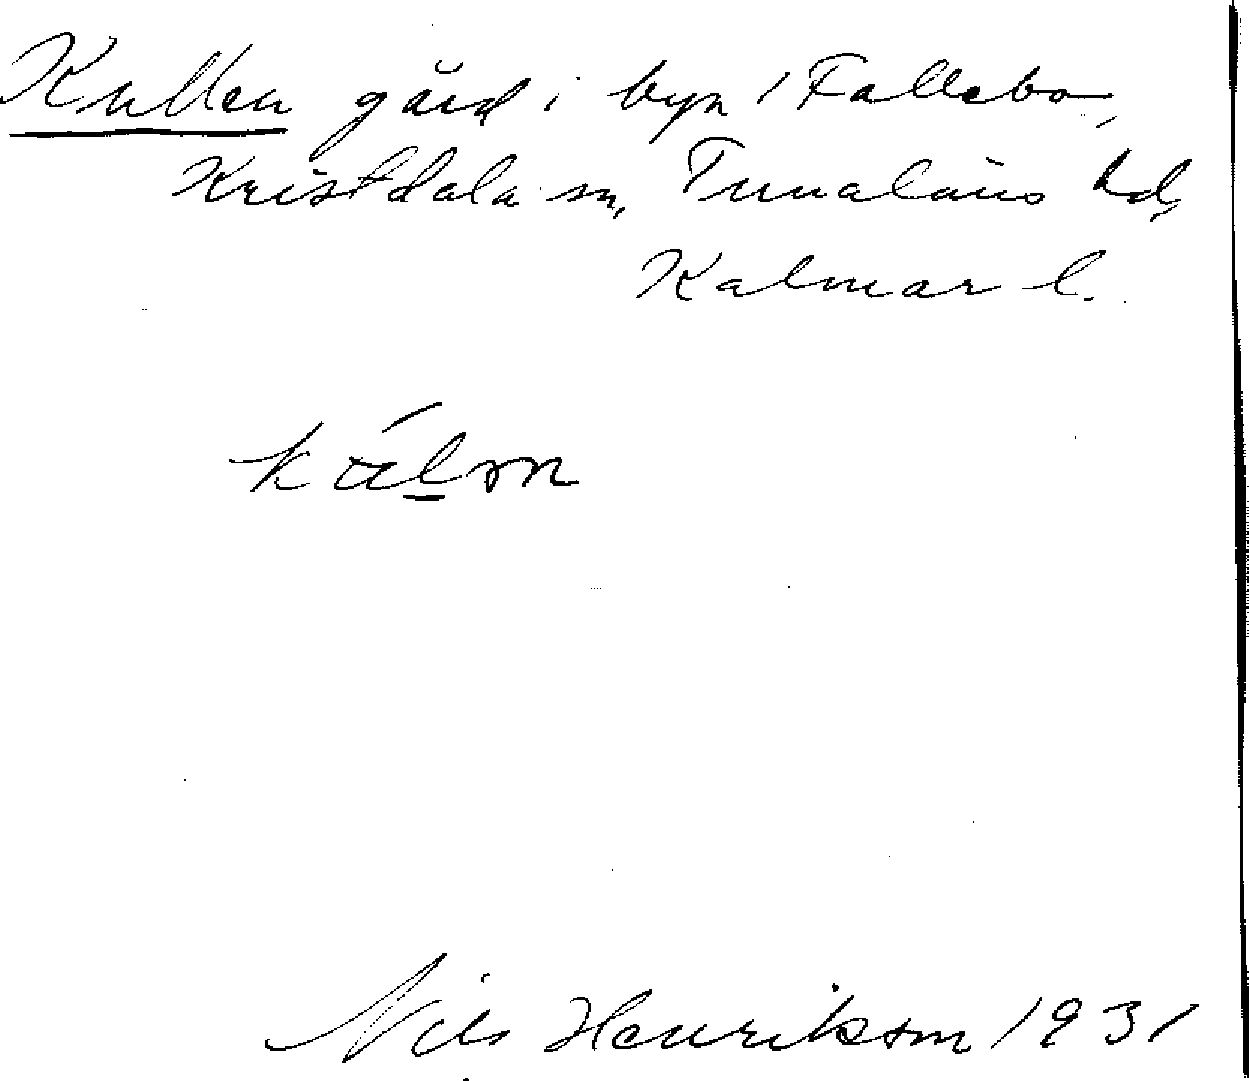 Kullen gård i byn Fallebo,
Kristdala sn, Tunaläns hd,
Kalmar l.
Nils Henrikson 1931